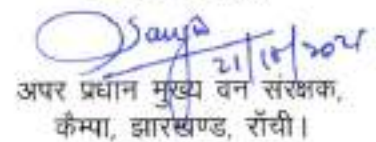 21/10/2021
अपर प्रधान मुख्य वन संरक्षक,
कैम्पा, झारखण्ड, राँची।